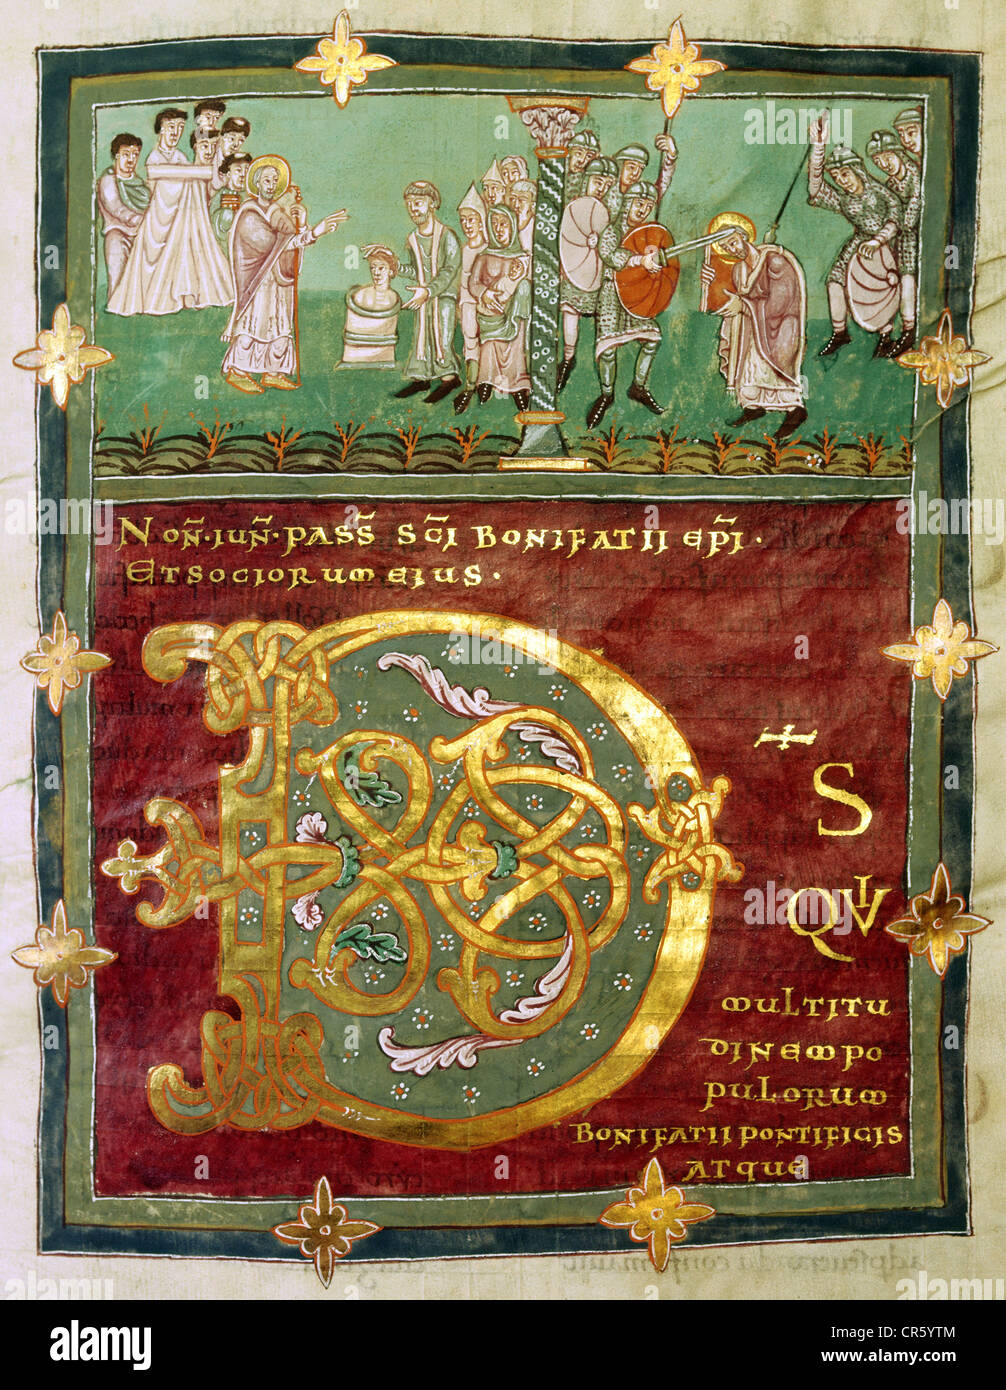 NOÑ·IUÑ·PASS̄ SC̄I BONIFATII EP̄I·
ETSOCIORUMEIUS·
D
S
QUI
MULTITU
DINEMPO
PULORUM
BONIFATII PONTIFICIS
ATQUE
alamy
www.alamy.com
Image ID: CR5YTM
www.alamy.com